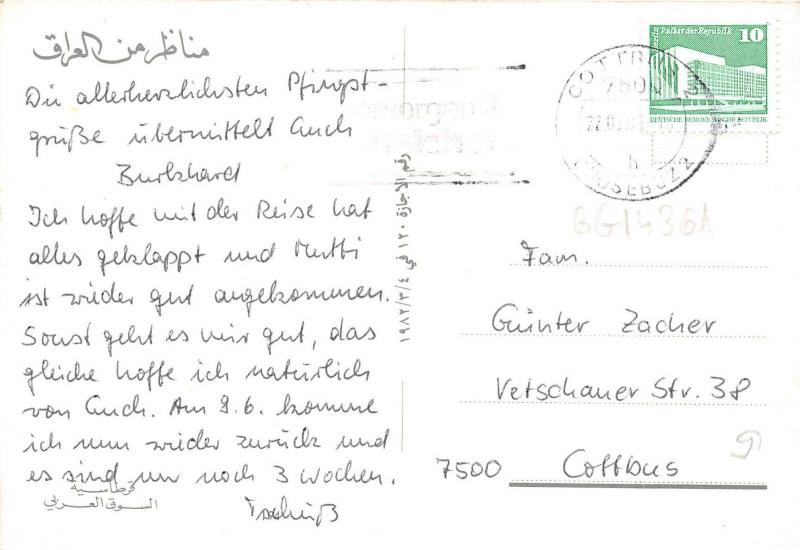 مناظر من العراق
Die allerherzlichsten Pfingst-
grüße übermittelt Euch
Burkhard
Ich hoffe mit der Reise hat
alles geklappt und Mutti
ist wieder gut angekommen.
Sonst geht es mir gut, das
gleiche hoffe ich natürlich
von Euch. Am 9.6. komme
ich nun wieder zurück und
es sind nur noch 3 Wochen.
Tschüß
قرطاسية
السوق العربي
رقم الاجازة ١٢٠ في ١٩٨٢/٣/٤
Berlin Palast der Republik 10
DEUTSCHE DEMOKRATISCHE REPUBLIK
COTTBUS
7500
CHOSEBUZ 2
h
BG/436A
Fam.
Günter Zacher
Vetschauer Str. 38
7500 Cottbus